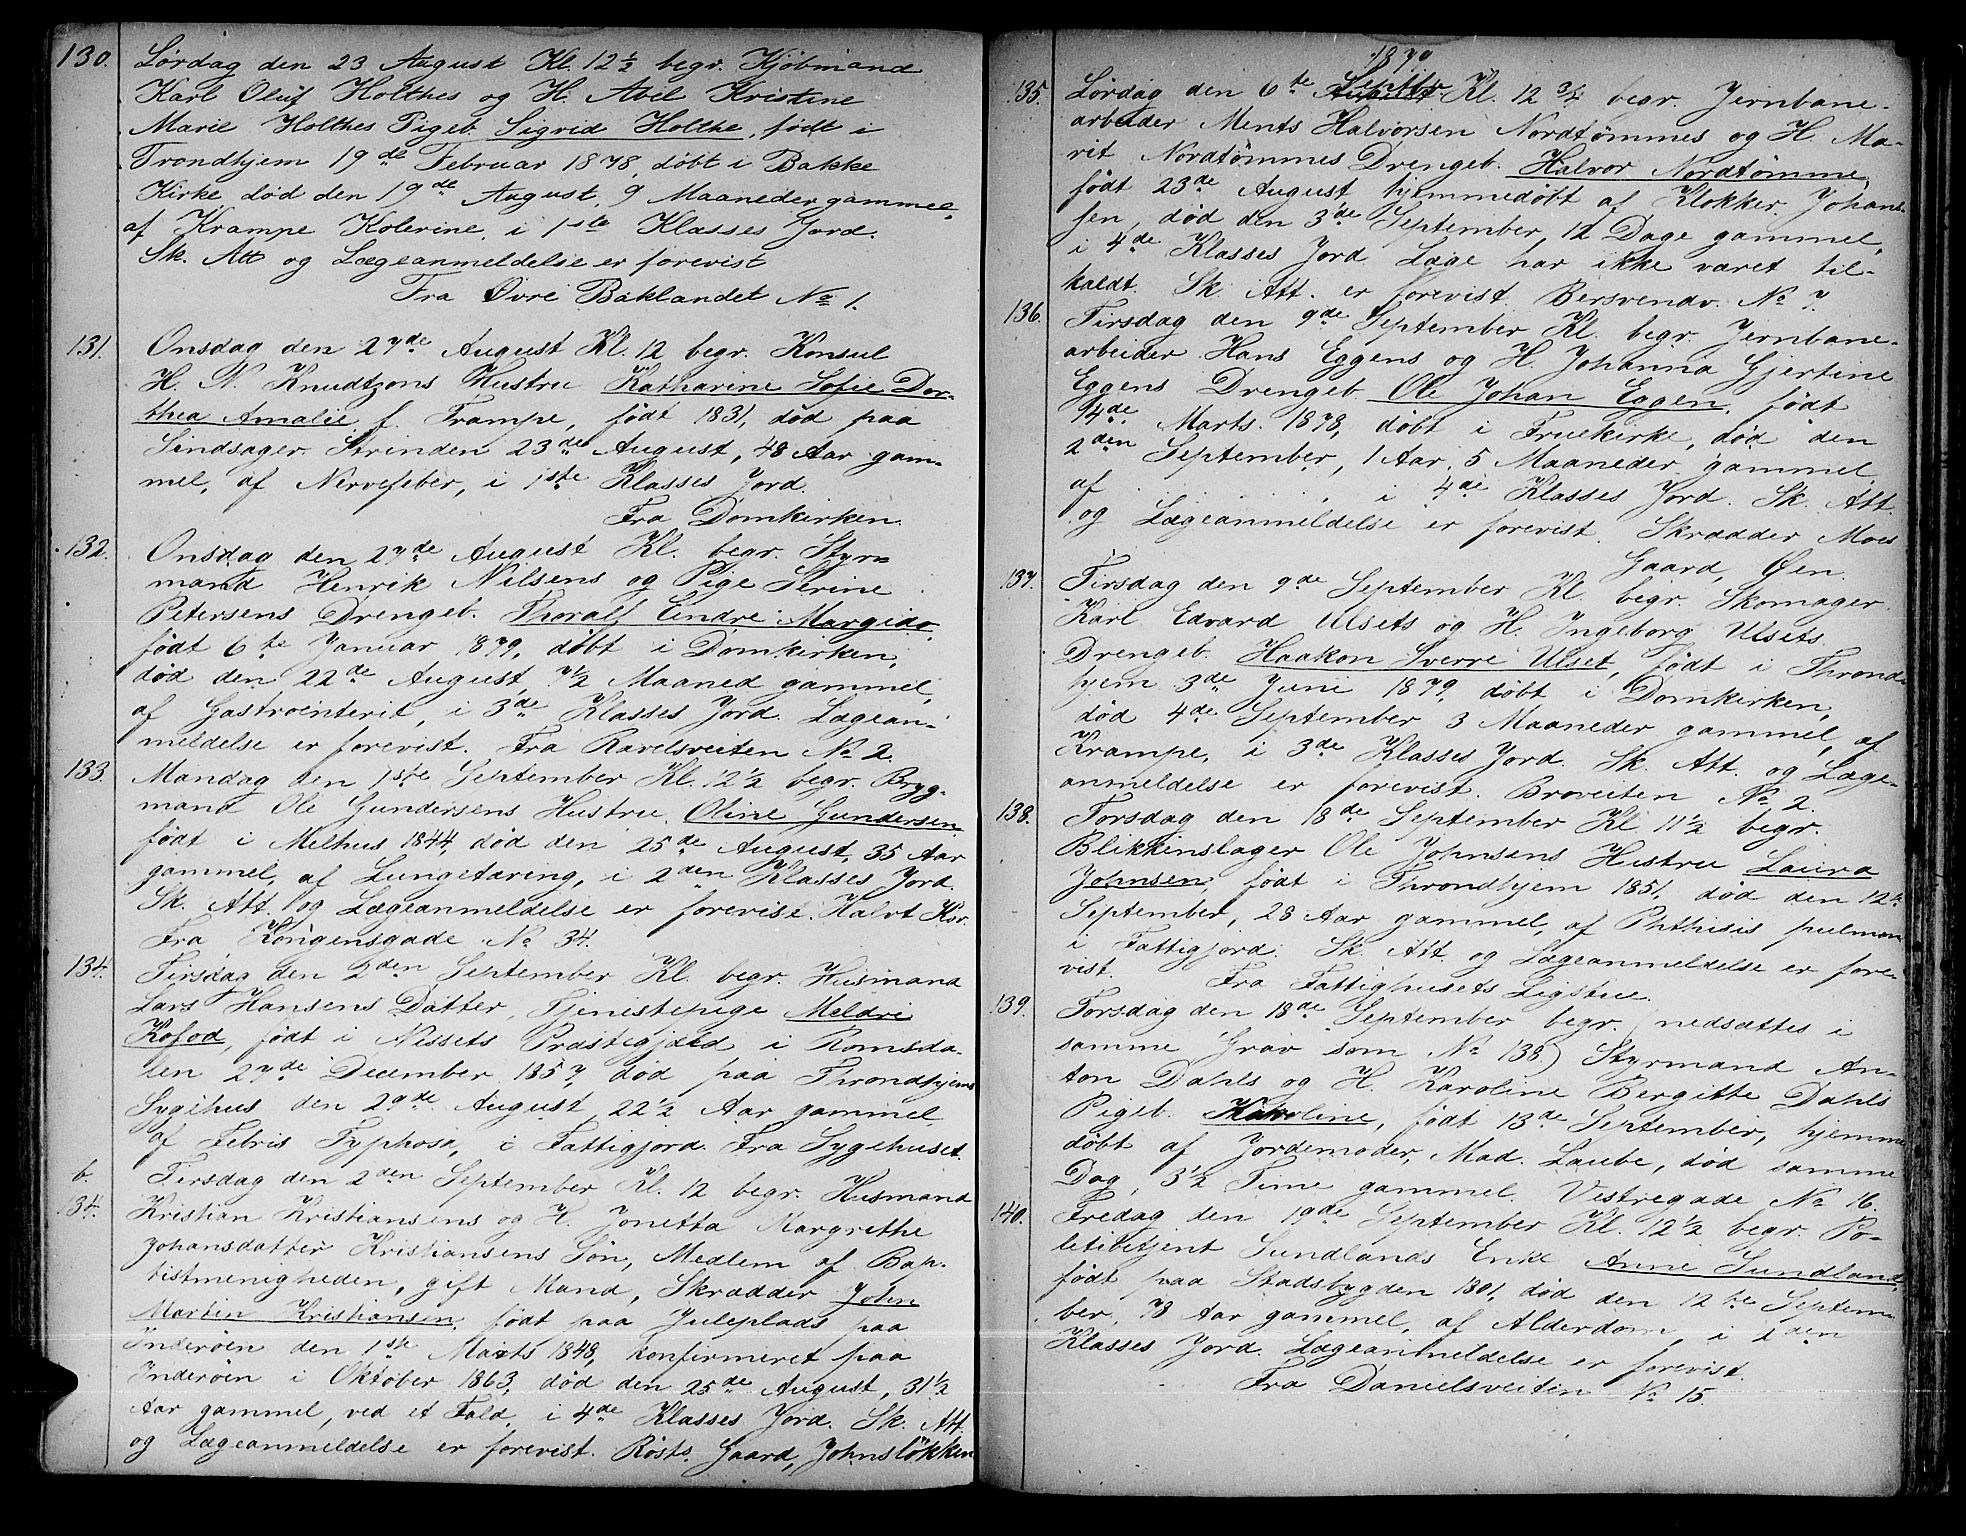 130. Lørdag den 23 August Kl. 12 ½ begr. Kjøbmand
Karl Oluf Holthes og H. Abel Kristine
Marie Holthes Pigeb. Sigrid Holthe, født i
Trondhjem 19de Februar 1878, døbt i Bakke
Kirke død den 19de August, 9 Maaneder gammel,
af Krampe Kolerine, i 1ste Klasses Jord.
Sk. Att og Lægeanmeldelse er forevist
Fra Øvre Baklandet No 1.
131. Onsdag den 27de August Kl. 12 begr. Konsul
H. N. Knudtzons Hustru Katharine Sofie Dor-
thea Amalie f. Trampe, født 1831, død paa
Lindsager Strinden 23de August, 48 Aar gam-
mel, af Nervefeber, i 1ste Klasses Jord.
Fra Domkirken.
132. Onsdag den 27de August Kl. begr. Styr-
mand Henrik Nilsens og Pige Serine
Petersens Drengeb. Thoralf Eindre Margido,
født 6te Januar 1879, døbt i Domkirken,
død den 22de August, 7½ Maaned gammel,
af Gastroenterit, i 3de Klasses Jord. Lægean-
meldelse er forevist. Fra Ravelsveiten No 2.
133. Mandag den 1ste September Kl. 12 ½ begr. Bryg-
mand Ole Gundersens Hustru Oline Gundersen
født i Melhus 1844, død den 25de August, 35 Aar
gammel, af Lungetæring, i 2den Klasses Jord.
Sk. Att og Lægeanmeldelse er forevist. Halvt Kor.
Fra Kongensgade No 34.
134. Tirsdag den 2den September Kl. begr. Husmand
Lars Hansens Datter, Tjenestepige Meldri
Kofod, født i Nessets Præstegjæld i Romsda-
len 27de December 1857, død paa Throndhjems
Sygehus den 29de August 22½ Aar gammel
af Febris Typhosa, i Fattigjord. Fra Sygehuset.
b. Tirsdag den 2den September Kl. 12 begr. Husmand
34. Kristian Kristiansens og H. Jonetta Margrethe
Johansdatter Kristiansens Søn, Medlem af Bap-
tistmenigheden, gift Mand, Skrædder John
Martin Kristiansen, født paa Juleplads paa
Inderøen den 1ste Marts 1848, konfirmeret paa
Inderøen i Oktober 1863, død den 25de August, 31½
Aar gammel, ved et Fald, i 4de Klasses Jord. Sk. Att.
og Lægeanmeldelse er forevist. Røsts Gaard, Johnsløkken
1879
135. Lørdag den 6te August Septbr Kl. 12 ¾ begr. Jernbane-
arbeider Ments Halvorsen Nordtømmes og H. Ma-
rit Nordtømmes Drengeb. Halvor Nordtømme,
født 23de August hjemmedøbt af Klokker Johan-
sen, død den 3de September, 12 Dage gammel,
i 4de Klasses Jord. Læge har ikke været til-
kaldt. Sk. Att. er forevist. Bersvendv. No 7.
136. Tirsdag den 9de September Kl. begr. Jernbane-
arbeider Hans Eggens og H. Johanna Gjertine
Eggens Drengeb. Ole Johan Eggen, født
4de Marts 1878, døbt i Fruekirke, død den
2den September, 1 Aar, 5 Maaneder gammel,
af , i 4de Klasses Jord. Sk. Att.
og Lægeanmeldelse er forevist. Skrædder Moes
Gaard, Øen.
137. Tirsdag den 9de September Kl. begr. Skomager
Karl Edvard Ulsets og H. Ingeborg Ulsets
Drengeb. Haakon Sverre Ulset, født i Thrond-
hjem 3de Juni 1879 døbt i Domkirken,
død 4de September 3 Maaneder gammel, af
Krampe, i 3de Klasses Jord. Sk. Att. og Læge-
anmeldelse er forevist. Broveiten No 2.
138. Torsdag den 18de September Kl 11½ begr.
Blikkenslager Ole Johnsens Hustru Laura
Johnsen, født i Throndhjem 1851, død den 12te
September, 28 Aar gammel, af Phthisis pulmon
i Fattigjord. Sk. Att og Lægeanmeldelse er fore-
vist. Fra Fattighusets Ligstue.
139. Torsdag den 18de September begr. (nedsættes i
samme Grav som No 138) Styrmand An-
ton Dahls og H. Karoline Bergitte Dahls
Pigeb. Karoline, født 13de September, hjemme
døbt af Jordemoder, Mad. Laube, død samme
Dag, 3½ Time gammel. Vestregade No 16.
140. Fredag den 19de September Kl. 12½ begr. Po-
litibetjent Sundlands Enke Anne Sundland,
født paa Stadsbygden 1801, død den 12te Septem-
ber, 78 Aar gammel, af Alderdom, i 2den
Klasses Jord. Lægeanmeldelse er forevist.
Fra Danielsveiten No 15.